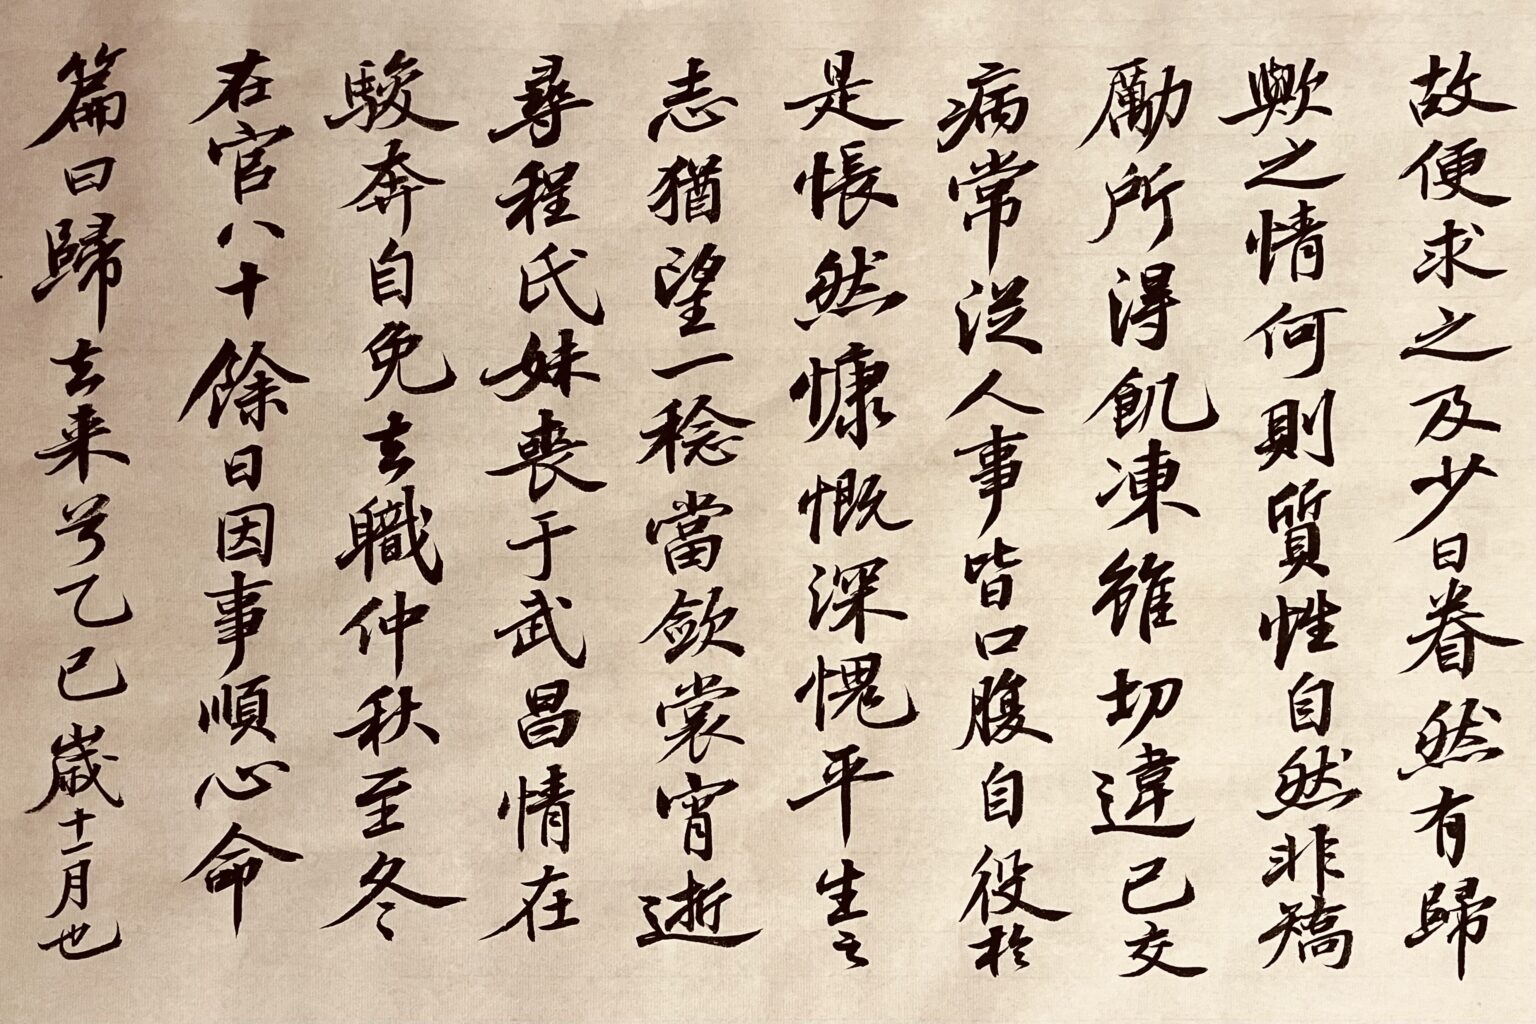 故便求之及少日眷然有歸
歟之情何則質性自然非矯
勵所得飢凍雖切違已交
病常從人事皆口腹自役於
是悵然慷慨深愧平生之
志猶望一稔當斂裳宵逝
尋程氏妹喪于武昌情在
駿奔自免去職仲秋至冬
在官八十餘日因事順心命
篇曰歸去来兮乙巳歲十一月也